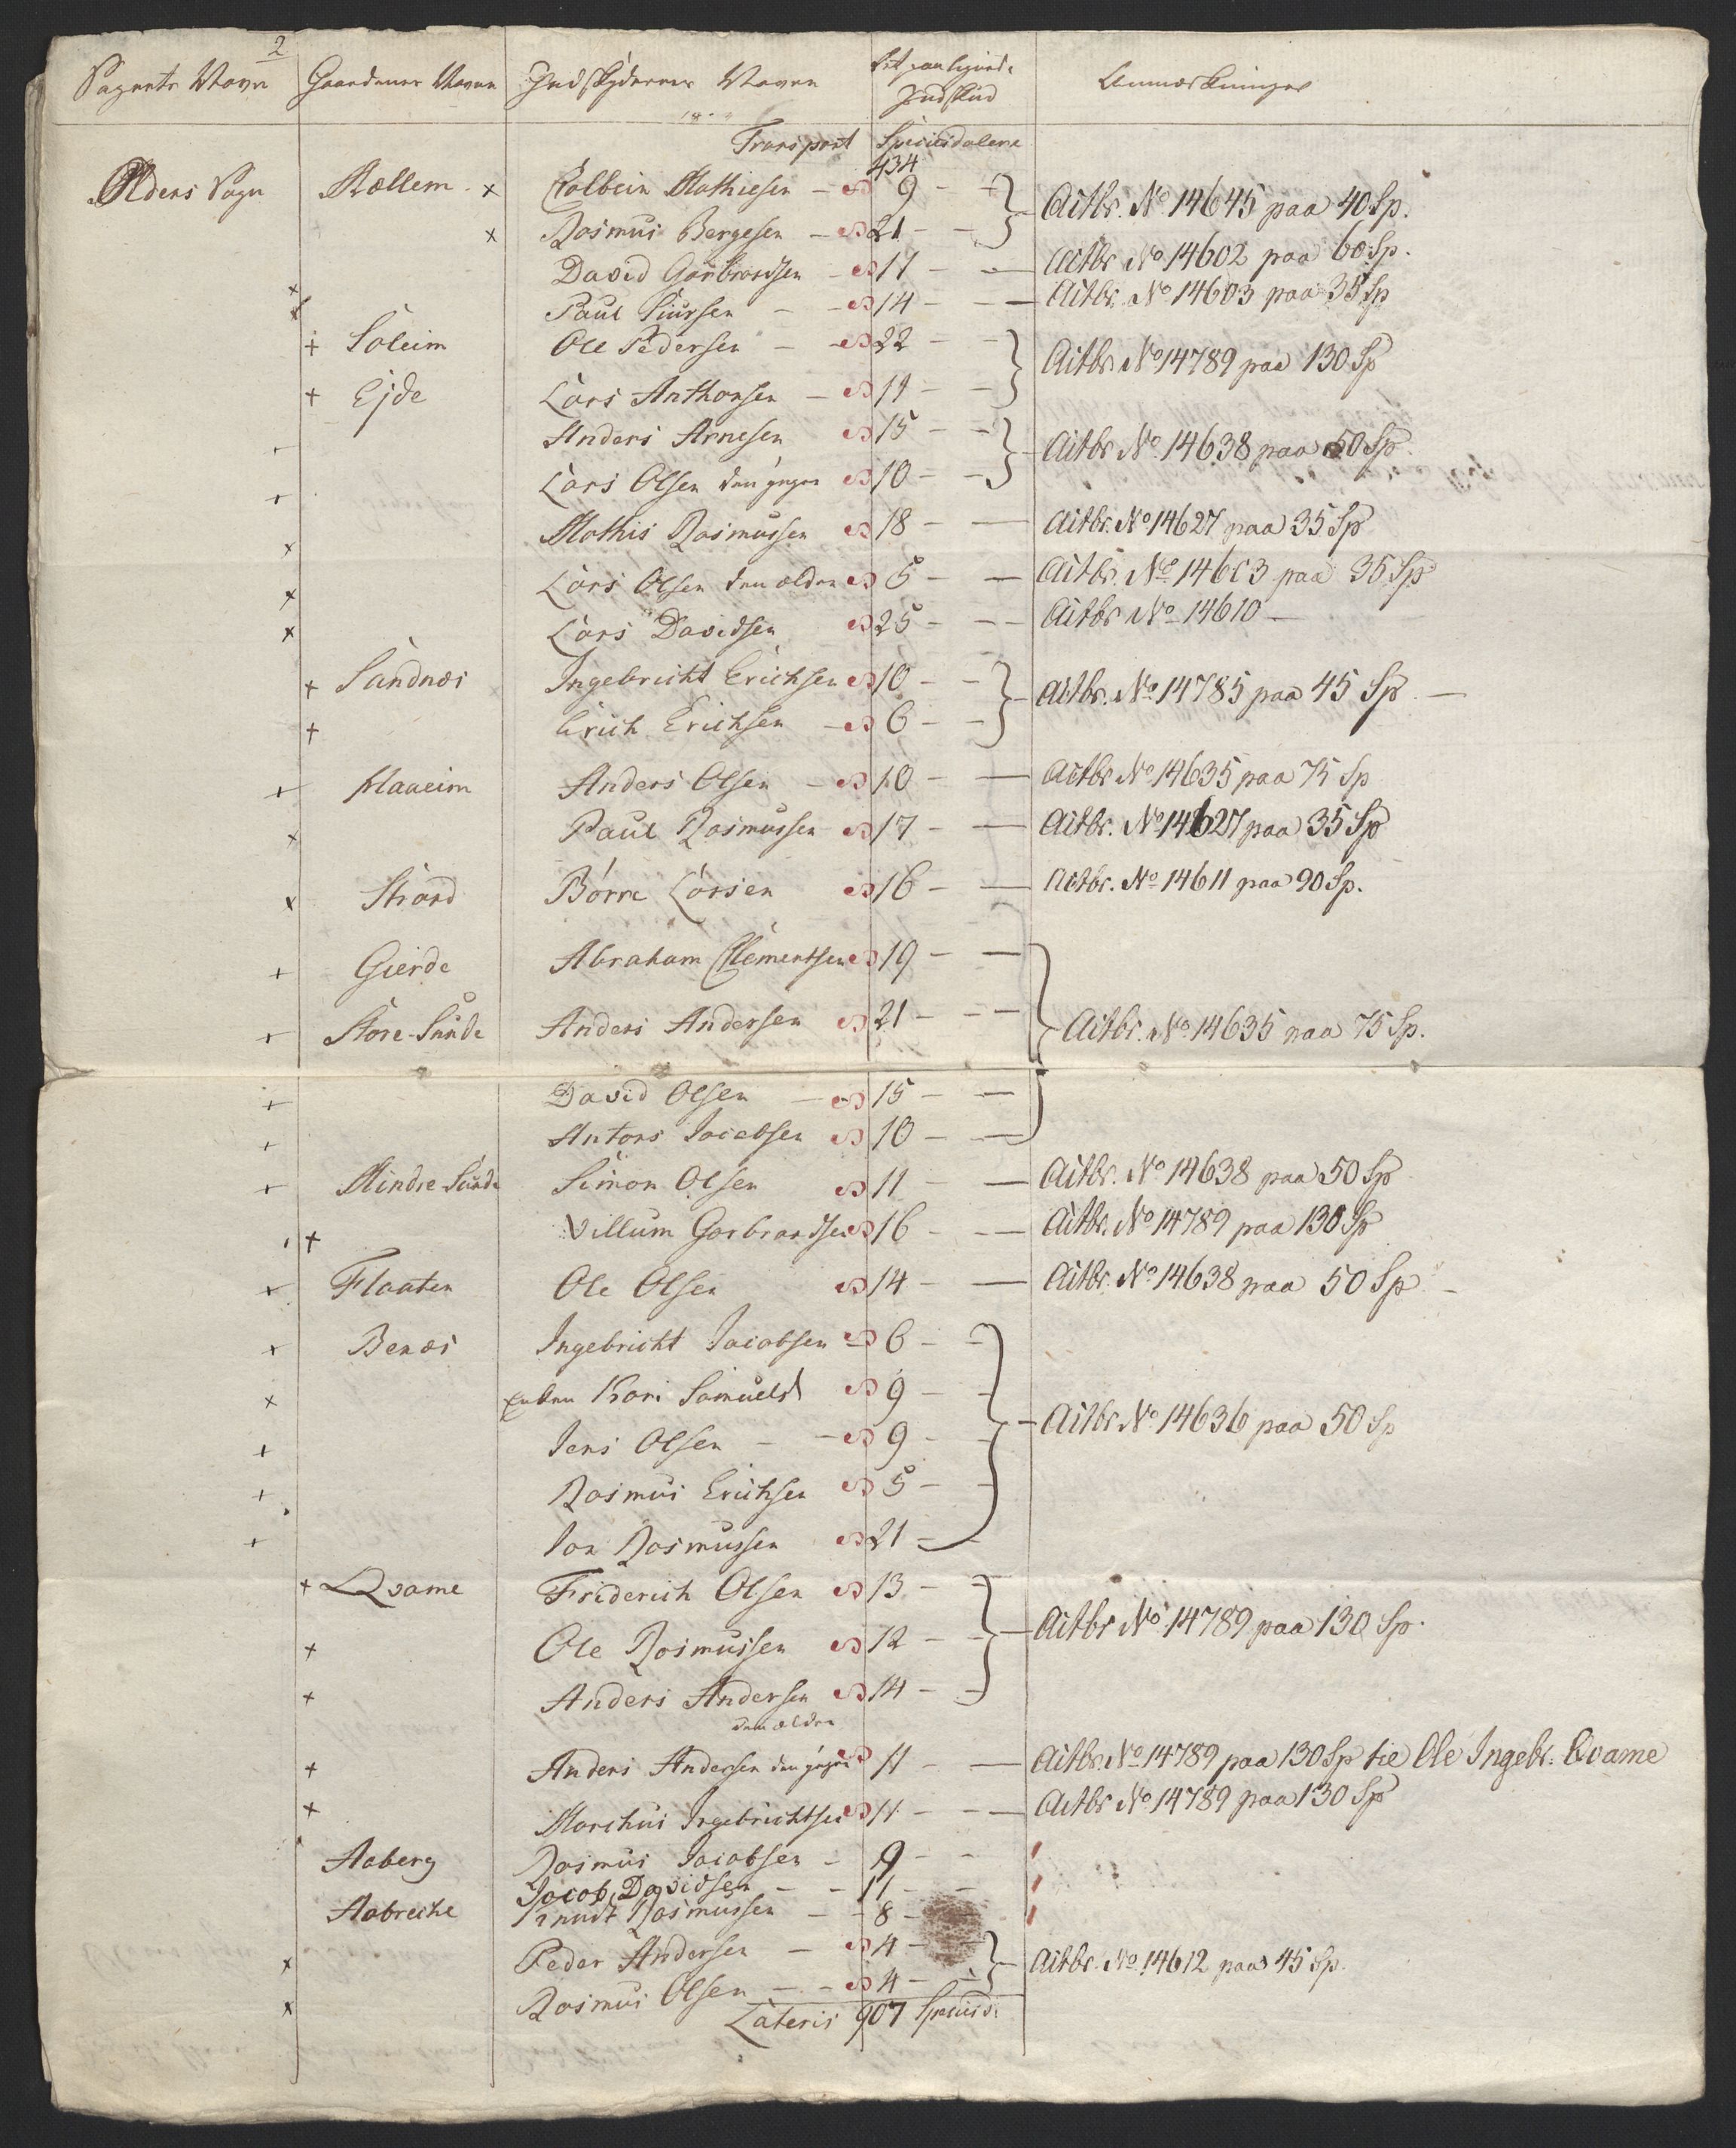 2
Sognets Navn Gaardenes Navne Indskydernes Navne Det paalignede Indskud Anmærkninger
Transport Speciesdalere
434
Oldens Sogn Mællem x Colbein Mathiesen - 9 - - Actbr. No 14645 paa 40 Sp.
x Rasmus Bergesen - 21 - -
David Garbrandsen - 17 - - Actbr. No 14602 paa 60 Sp.
x Paul Siursen - - 14 - - - Actbr. No 14603 paa 35 Sp
+ Soleim Ole Pedersen - - 22 - - Actbr. No 14789 paa 130 Sp
+ Ejde Lars Anthonsen - 11 - -
Anders Arnesen 15 - - Actbr. No 14638 paa 50 Sp.
+ Lars Olsen den yngre 10 - -
x Mathis Rasmussen 18 - - Actbr. No 14627 paa 35 Sp
x Lars Olsen den ældre 5 - - Actbr. No 14603 paa 35 Sp
x Lars Davidsen 25 - - - Actbr No 14610 -
+ Sandnæs Ingebricht Erichsen 10 - - Actbr. No 14785 paa 45 Sp. -
+ Erich Erichsen - 6 - -
+ Maaeim Anders Olsen - 10 - - Actbr No 14635 paa 75 Sp
x Paul Rasmussen 17 - - Actbr. No 14627 paa 35 Sp
x Strand Børre Larsen 16 - - Actbr. No 14611 paa 90 Sp.
+ Gierde Abraham Clementsen 19 - -
+ Store-Sunde Anders Andersen 21 - - - Actbr. No 14635 paa 75 Sp.
+ David Olsen - 15 - -
+ Antons Jacobsen 10 - -
+ Mindre Sunde Simon Olsen 11 - - Actbr. No 14638 paa 50 Sp
+ Villum Garbrandsen 16 - - - Actbr. No 14789 paa 130 Sp
+ Flaaten Ole Olsen 14 - - Actbr. No 14638 paa 50 Sp. -
x Benæs Ingebricht Jacobsen 6 - -
x Enken Kari Samuelsd 9 - - Actbr No 14636 paa 50 Sp
+ Jens Olsen - - 9 - -
+ Rasmus Erichsen 5 - -
+ Jon Rasmussen 21 -
+ Qvame Friderich Olsen 13 - -
+ Ole Rasmussen 12 - - Actbr No 14789 paa 130 Sp.
+ Anders Andersen 14 - -
den ældre
+ Anders Andersen den yngre 11 - - Actbr. No 14789 paa 130 Sp til Ole Ingebr: Qvame
+ Marchus Ingebrichtsen 11 - - - Actbr No 14789 paa 130 Sp
Aaberg Rasmus Jacobsen - 9 - -
Jacob Davidsen - - 11 - -
Aabrecke Knudt Rasmussen - - 8 - -
x Peder Andersen - 4 - - Actbr. No 14612 paa 45 Sp.
x Rasmus Olsen - - 4 - -
Lateris 907 Speciesd: